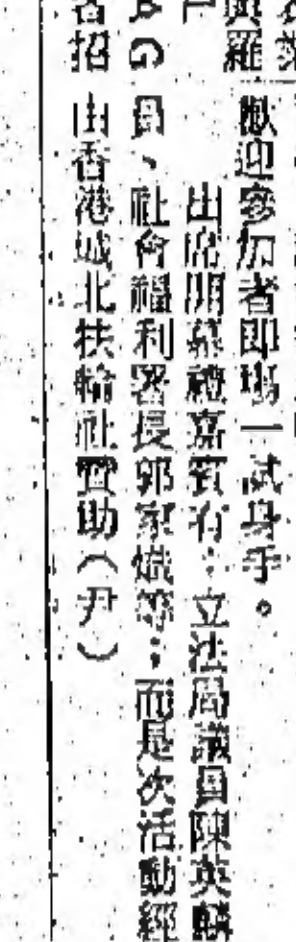 歡迎參加者即場一試身手。
出席開幕禮嘉賓有：立法局議員陳英麟
員、社會福利署長郭家熾等；而是次活動經
由香港城北扶輪社贊助（尹）
羅
AG
招